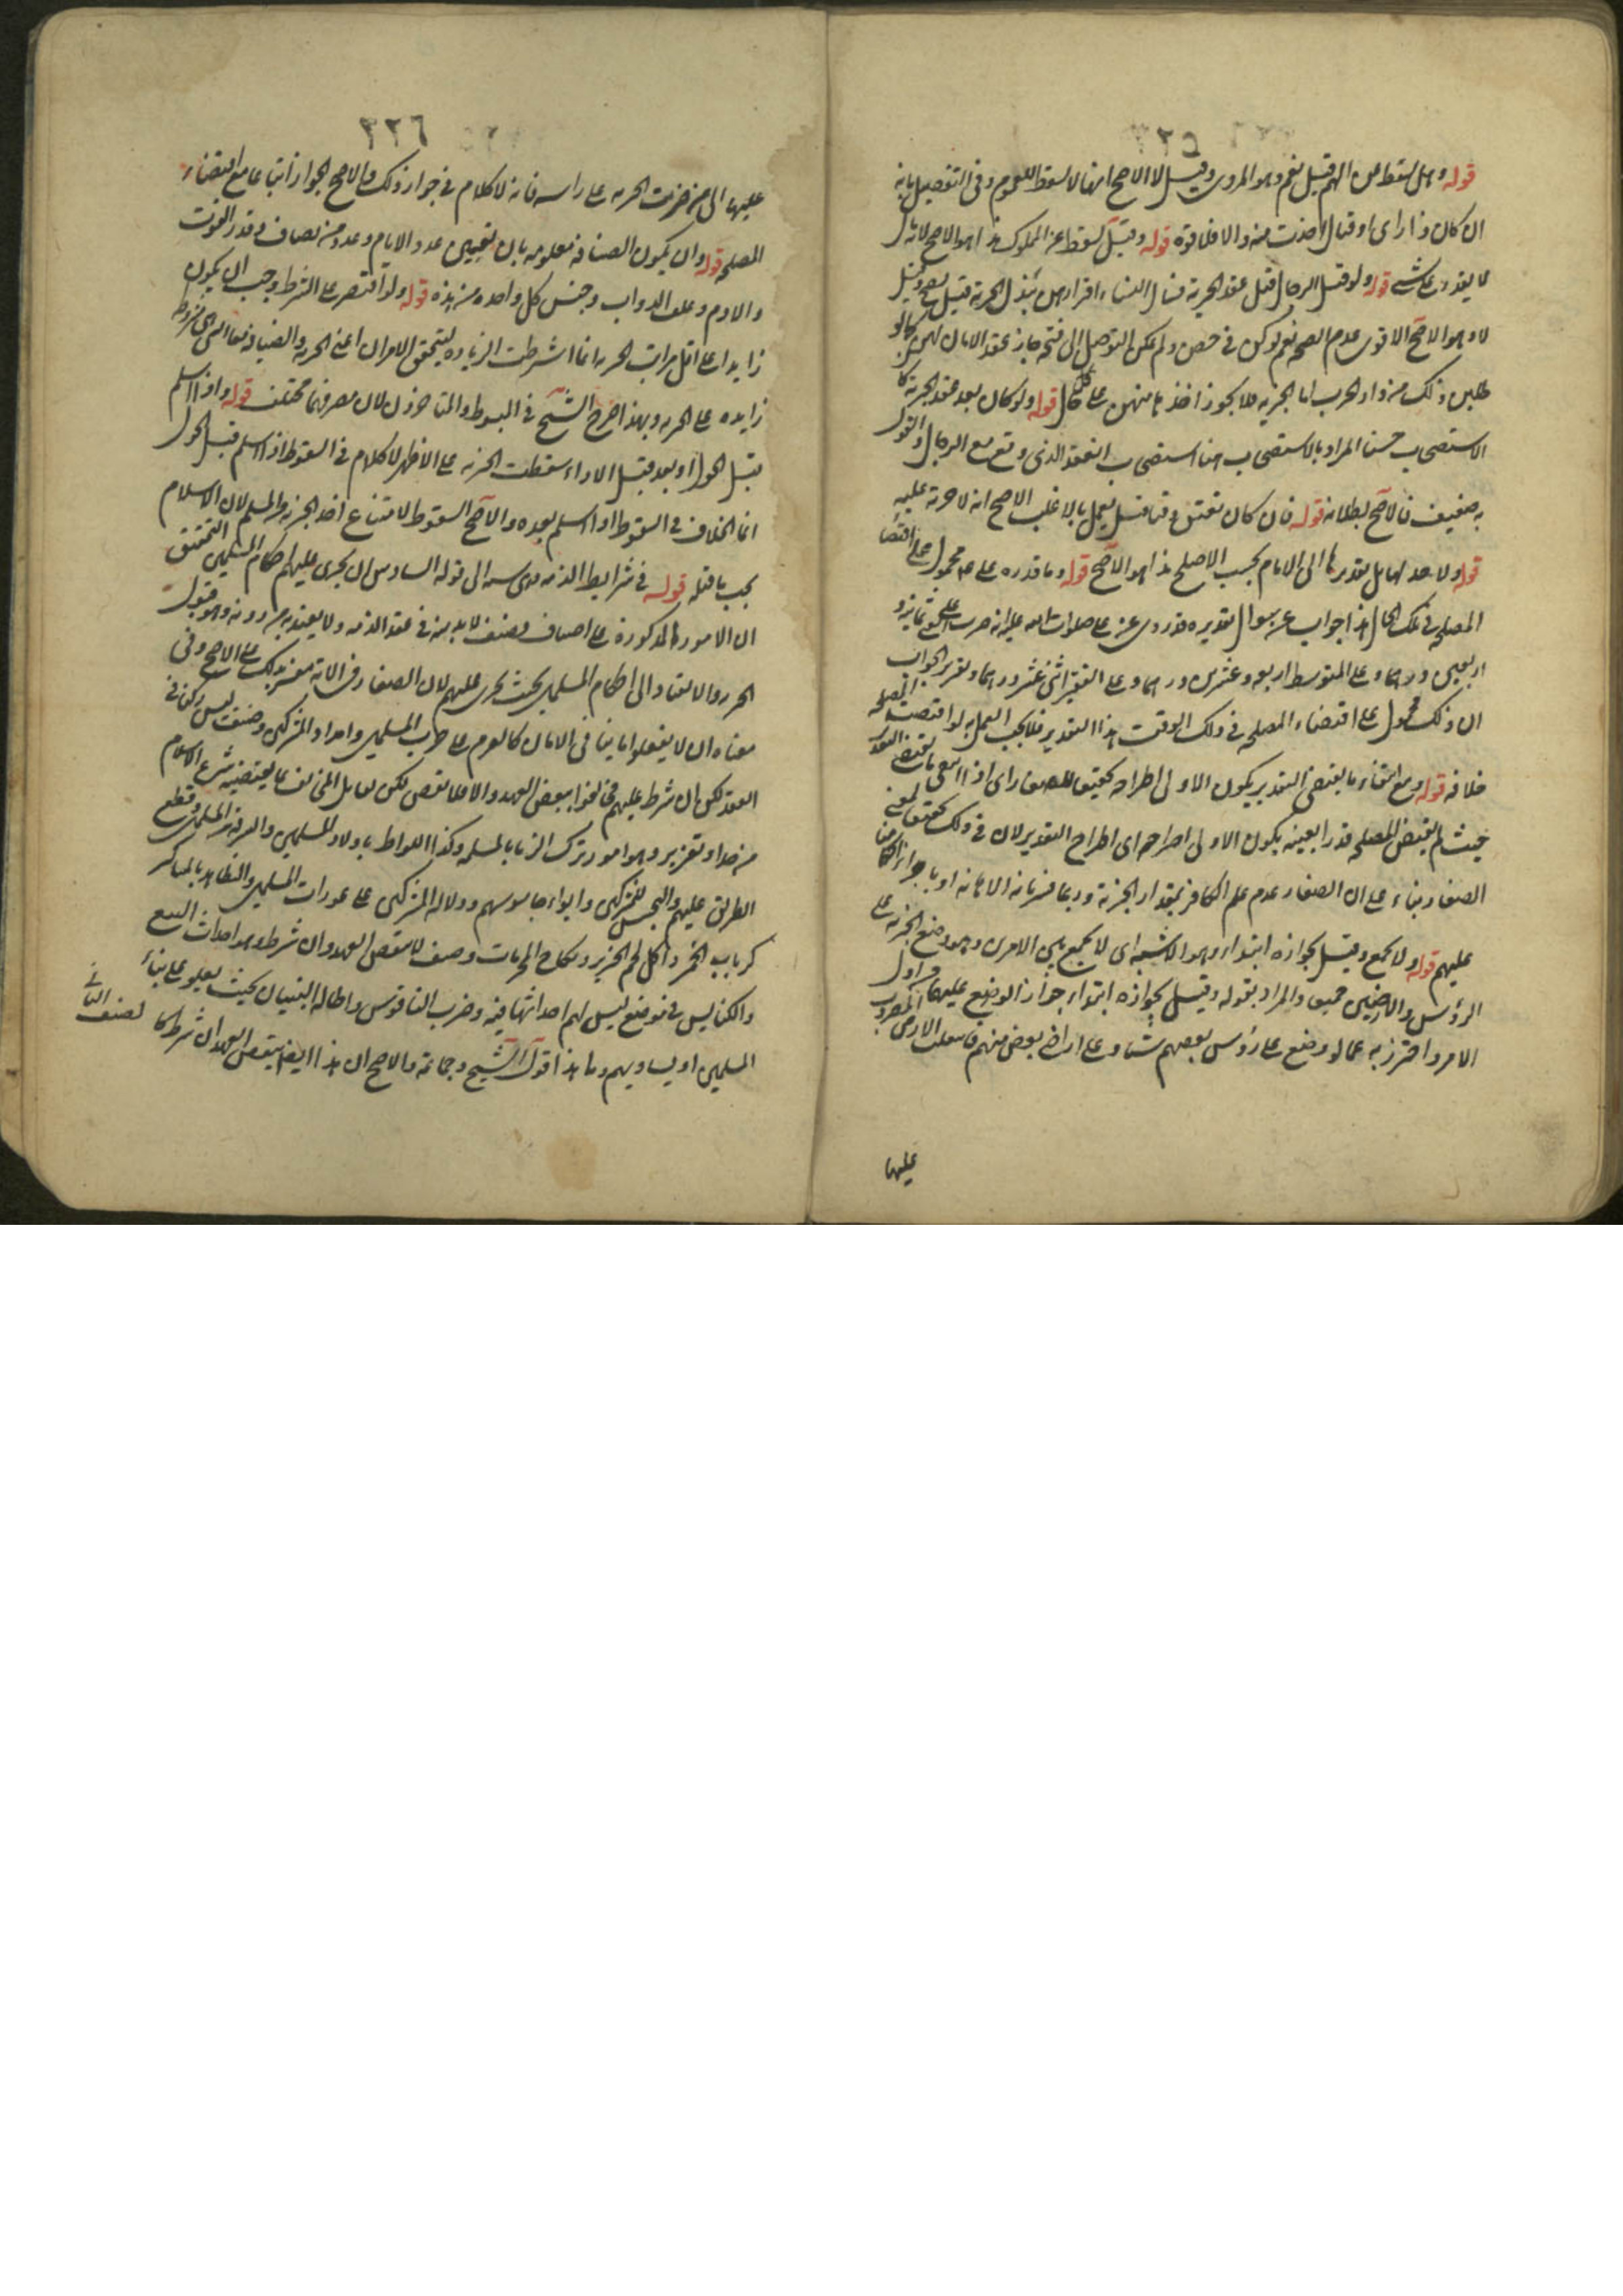 ٣٢٥
قوله وهل يسقط عن الهم قيل نعم وهو المروي وقيل لا الاصح انها لا تسقط للعموم وفي التفصيل بانه
ان كان ذا رأي او قتال اخذت منه والا فلا قوة قوله وقيل تسقط عن المملوك هذا هو الاصح لانه
لا يقدر على شيء قوله ولو قتل الرجال قبل عقد الجزية فسأل النساء اقرارهن ببذل الجزية قيل يصح وقيل
لا وهو الاصح الاقوى عدم الصحة نعم لو كن في حصن ولم يمكن التوصل الى فتحه جاز عقد الامان لهن كما لو
طلبن ذلك من دار الحرب اما الجزية فلا يجوز اخذها منهن على حال قوله ولو كان بعد عقد الجزية كان
الاستصحاب حسنا المراد بالاستصحاب هنا استصحاب العقد الذي وقع مع الرجال والقول
به ضعيف فالاصح بطلانه قوله فان كان يعتق وقتا قيل يعمل بالاغلب الاصح انه لا جزية عليه
قوله ولا حد لها بل تقديرها الى الامام بحسب الاصلح هذا هو الاصح قوله وما قدره علي ع محمول على اقتضاء
المصلحة في تلك الحال هذا جواب عن سؤال تقديره قد روي عن علي صلوات الله عليه انه ضرب على الغني ثمانية و
اربعين درهما وعلى المتوسط اربعة وعشرين درهما وعلى الفقير اثني عشر درهما وتقرير الجواب
ان ذلك محمول على اقتضاء المصلحة في ذلك الوقت هذا التقدير فلا يجب العمل به لو اقتضت المصلحة
خلافه قوله ومع انتفاء ما يقتضي التقدير يكون الاولى اطراحه تحقيقا للصغار اي اذا
حيث لم يقتض المصلحة قدرا بعينه يكون الاولى اطراحه اي اطراح التقدير لان في ذلك تحقيق لمعنى
الصغار بناء على ان الصغار عدم علم الكافر بمقدار الجزية
عليهم قوله ولا يجمع وقيل بجوازه ابتداء وهو الاشبه اي لا يجمع بين الامرين وهو وضع الجزية على
الرؤس والارضين جميعا والمراد بقوله وقيل بجوازه ابتداء جواز الوضع عليهما اول
الامر واحترز به عما لو وضع على رؤس بعضهم شيئا وعلى اراضي بعض منهم
عليها
٣٢٦
عليها الى من ضربت الجزية على راسه فانه لا كلام في جواز ذلك والاصح الجواز اتباعا مع اقتضاء
المصلحة قوله وان يكون الضيافة معلومة بان تعيين عدد الايام وعدد من يضاف وقدر القوت
والادم وعلف الدواب وجنس كل واحدة من هذه قوله ولو اقتصر على الشرط وجب ان يكون
زايدا على اقل مراتب الجزية انما اشترطت الزيادة ليتحقق الامران اعني الجزية والضيافة
زايدة على الجزية وبهذا صرح الشيخ في المبسوط والمتاخرون لان مصرفهما مختلف قوله واذا اسلم
قبل الحول او بعده قبل الاداء سقطت الجزية على الاظهر لا كلام في السقوط اذا اسلم قبل الحول
انما الخلاف في السقوط اذا اسلم بعده والاصح السقوط لامتناع اخذ الجزية من المسلم لان الاسلام
يجب ما قبله قوله في شرايط الذمة وهي ستة الى قوله السادس ان يجري عليهم احكام المسلمين التحقيق
ان الامور المذكورة على اصناف صنف لا بد منه في عقد الذمة ولا يعتد به من دونه وهو قبول
الجزية والانقياد الى احكام المسلمين بحيث تجري عليهم لان الصغار في الاية مفسر بذلك على الاصح وفي
معناه ان لا يفعلوا ما ينافي الامان كالعزم على حرب المسلمين وامداد المشركين وصنف ليس ركنا في
العقد لكن ان شرط عليهم فخالفوا ينقض العهد والا فلا نقض لكن يعامل المخالف بما يقتضيه شرع الاسلام
من حد او تعزير وهو امور ترك الزنا بالمسلمة وكذا اللواط باولاد المسلمين والسرقة من المسلمين وقطع
الطريق عليهم والتجسس للمشركين وايواء جاسوسهم ودلالة المشركين على عورات المسلمين والتظاهر بالمناكر
كشرب الخمر واكل لحم الخنزير ونكاح المحرمات وصنف لا ينقض العهد وان شرط وهو احداث البيع
والكنايس في موضع ليس لهم احداثها فيه وضرب الناقوس واطالة البنيان بحيث يعلو على بناء
المسلمين او يساويهم وما هذا قول الشيخ وجماعة والاصح ان هذا ايضا ينقض العهد ان شرط كالصنف الثاني